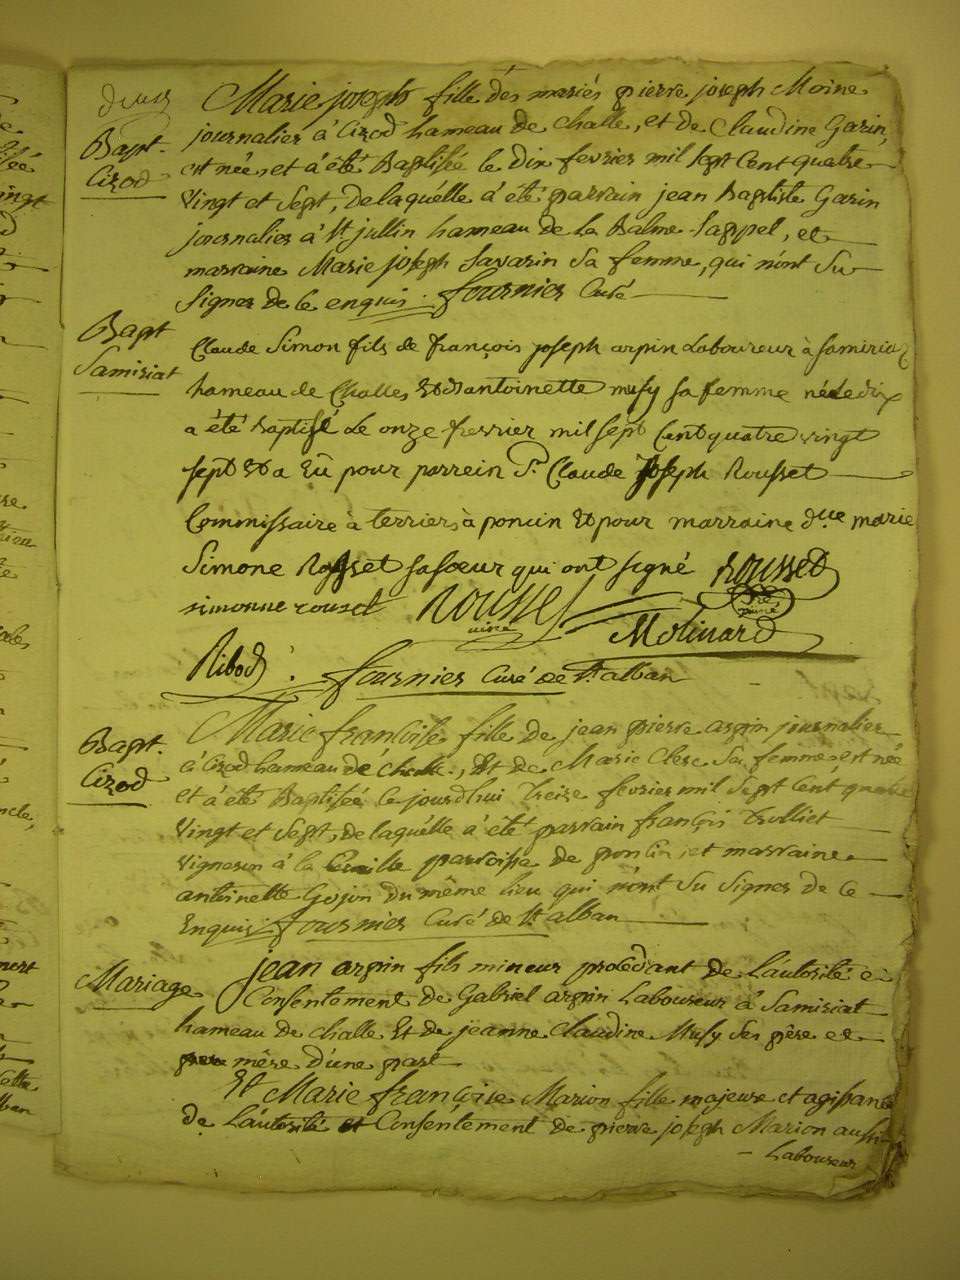 deux
Bapt.
Cizod
Marie joseph fille des mariés pierre joseph Moine
journalier à Cizod hameau de Challe, et de Claudine Garin,
est née, et à été Baptisée le dix fevrier mil sept Cent quatre
vingt et Sept, de laquélle à été parrain jean Baptiste Garin
journalier à St jullin hameau de la Balme Sappel, et
marraine Marie joseph Savarin Sa femme, qui n'ont Su
Signer de ce enquis. fournier Curé
Bapt
Samiriat
Claude Simon fils de françois joseph arpin Laboureur à Samiriat
hameau de Challes Et d'antoinette musy sa femme né le dix
a été baptisé Le onze fevrier mil sept Cent quatre vingt
sept Et a Eû pour parrein Sr Claude Joseph Rousset
Commissaire à terriers à poncin Et pour marraine dlle marie
Simone Rousset sa sœur qui ont signé Rousset
simonne rouset Rousset Molinard
Ribod. fournier Curé de St alban
Bapt.
Cizod
Marie françoise fille de jean pierre arpin journalier
à Cizod hameau de Challe, Et de Marie Clerc Sa femme, est née
et à été Baptisée Cejourd'hui treize fevrier mil Sept Cent quatre
Vingt et Sept, de laquélle à été parrain françois Trolliet
Vigneron à la paroisse de poncin, et marraine
antoinette Gojon du même lieu qui n'ont Su Signer de Ce
Enquis. fournier Curé de St alban
Mariage
jean arpin fils mineur procédant de L'autorité e
Consentement de Gabriel arpin Laboureur à Samiriat
hameau de Challe Et de jeanne Claudine Musy Ses père et
mère d'une part
Et Marie françoise Marion fille majeure et agissante
de L'autorité et Consentement de pierre joseph Marion aussi
Laboureur